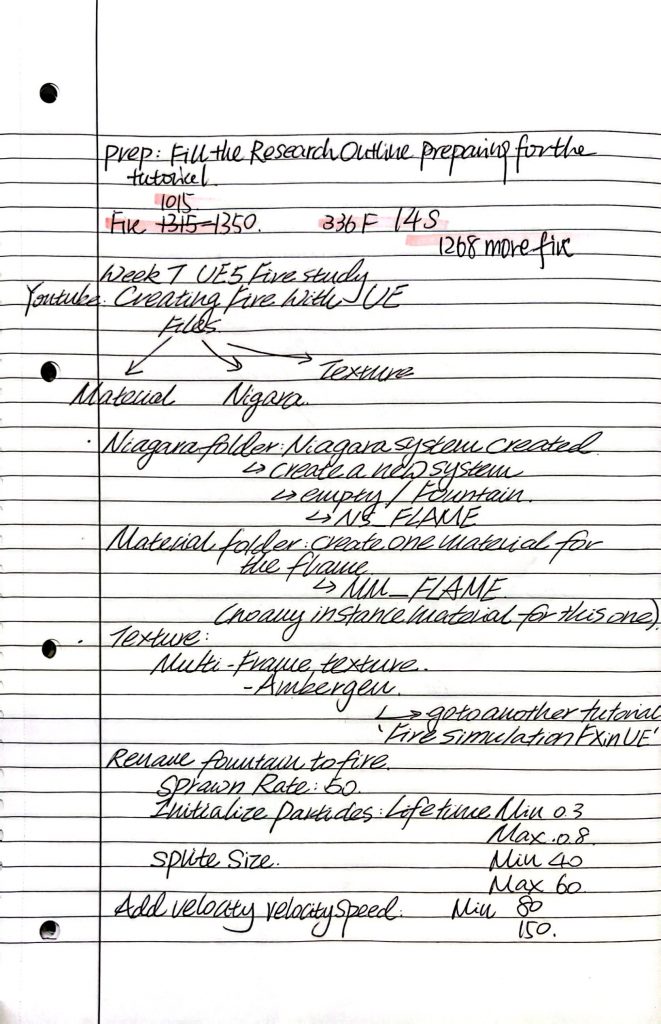 prep: Fill the Research Outline preparing for the
tutorical.
1015
Fire 1315-1350. 336F 14S
1268 more fire
Week 7 UE5 Fire study
Youtube: Creating Fire With UE
Files
Texture
Material Nigara.
· Niagara folder: Niagara system created
↳ create a new system
↳ empty / Fountain.
↳ NS_FLAME
Material folder: create one material for
the flame
↳ MM_FLAME
(no any instance material for this one).
· Texture:
Multi-Frame texture.
- Ambergen.
↳ go to another tutorial
'Fire simulation FX in UE'
Rename fountain to fire.
Sprawn Rate: 60.
Initialize Particles: Lifetime Min 0.3
Max .0.8.
Splite Size. Min 40
Max 60.
Add velocity velocity speed. Min 80
150.